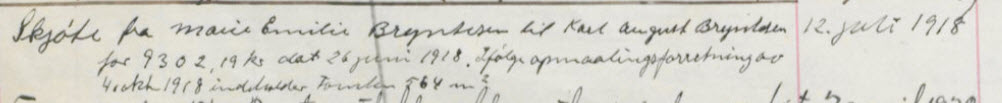 Skjöte fra Marie Emilie Bryntesen til Karl August Bryntesen 12. juli 1918
for 9302,19 kr dat 26 juni 1918. Ifølge opmaalingsforretning av
4 okt 1918 indeholder tomten 564 m²